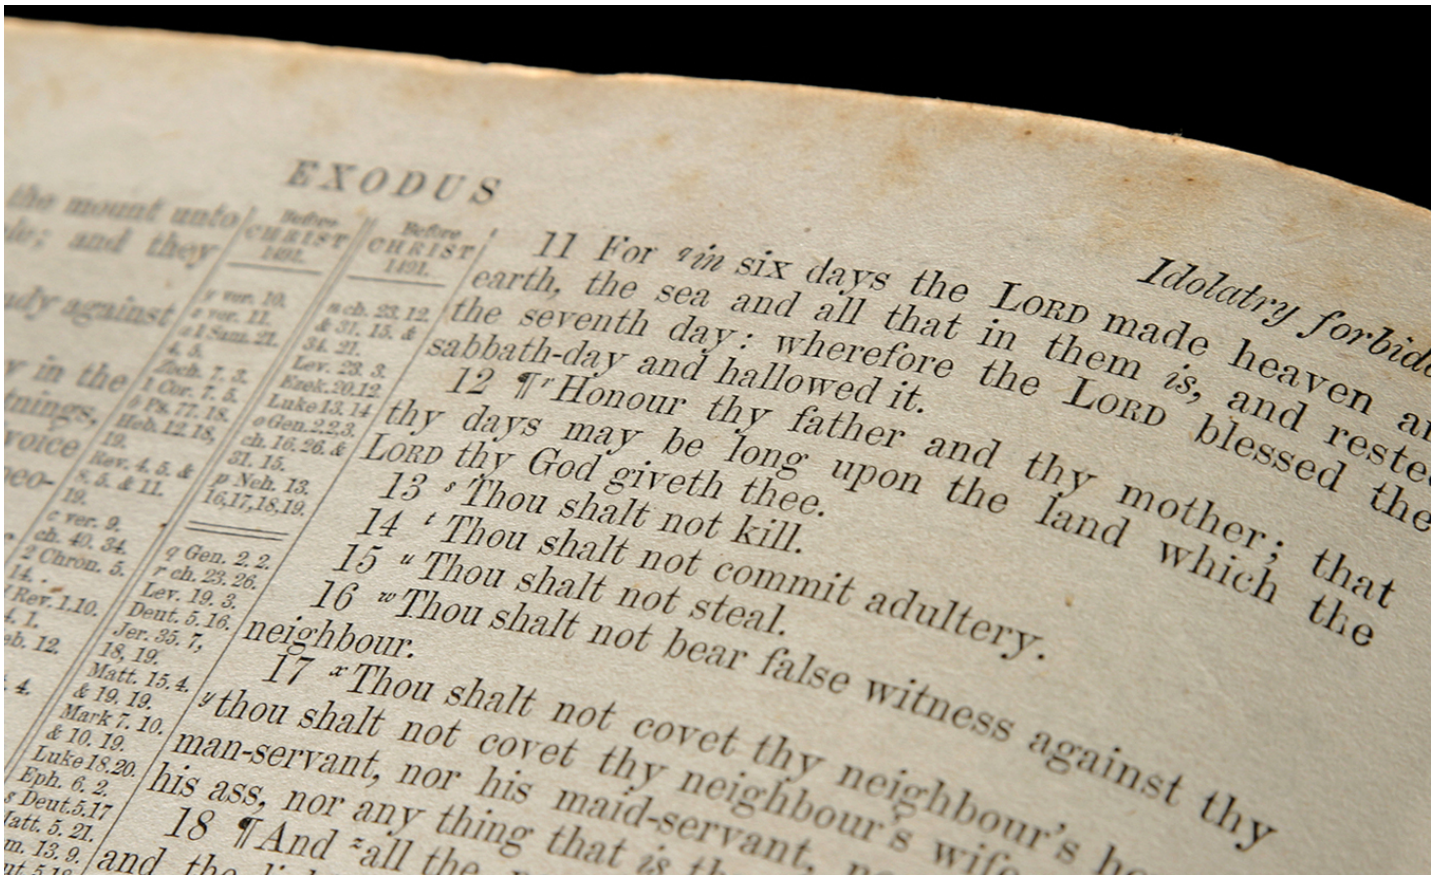 EXODUS
Idolatry forbid
the mount unto
and they
against
in the
voice
Before
CHRIST
1491.
ver. 10.
ver. 11.
1 Sam. 21.
4. 5.
Zech. 7. 3.
1 Cor. 7. 5.
Ps. 77. 18.
Heb. 12. 18,
19.
Rev. 4. 5. &
8. 5. & 11.
19.
c ver. 9.
ch. 40. 34.
2 Chron. 5.
14.
Rev. 1. 10.
4. 1.
12.
4.
Before
CHRIST
1491.
ch. 23. 12.
& 31. 15. &
34. 21.
Lev. 23. 3.
Ezek. 20. 12.
Luke 13. 14
o Gen. 2. 2, 3.
ch. 16. 26. &
31. 15.
p Neh. 13.
16, 17, 18. 19.
q Gen. 2. 2.
r ch. 23. 26.
Lev. 19. 3.
Deut. 5. 16.
Jer. 35. 7,
18, 19.
Matt. 15. 4.
& 19. 19.
Mark 7. 10.
& 10. 19.
Luke 18. 20.
Eph. 6. 2.
s Deut. 5. 17
Matt. 5. 21.
13. 9.
11 For q in six days the LORD made heaven
earth, the sea and all that in them is, and rested
the seventh day: wherefore the LORD blessed the
sabbath-day and hallowed it.
12 ¶ r Honour thy father and thy mother; that
thy days may be long upon the land which the
LORD thy God giveth thee.
13 s Thou shalt not kill.
14 t Thou shalt not commit adultery.
15 u Thou shalt not steal.
16 w Thou shalt not bear false witness against thy
neighbour.
17 x Thou shalt not covet thy neighbour's
y thou shalt not covet thy neighbour's wife
man-servant, nor his maid-servant,
his ass, nor any thing that is
18 ¶ And z all the
and the